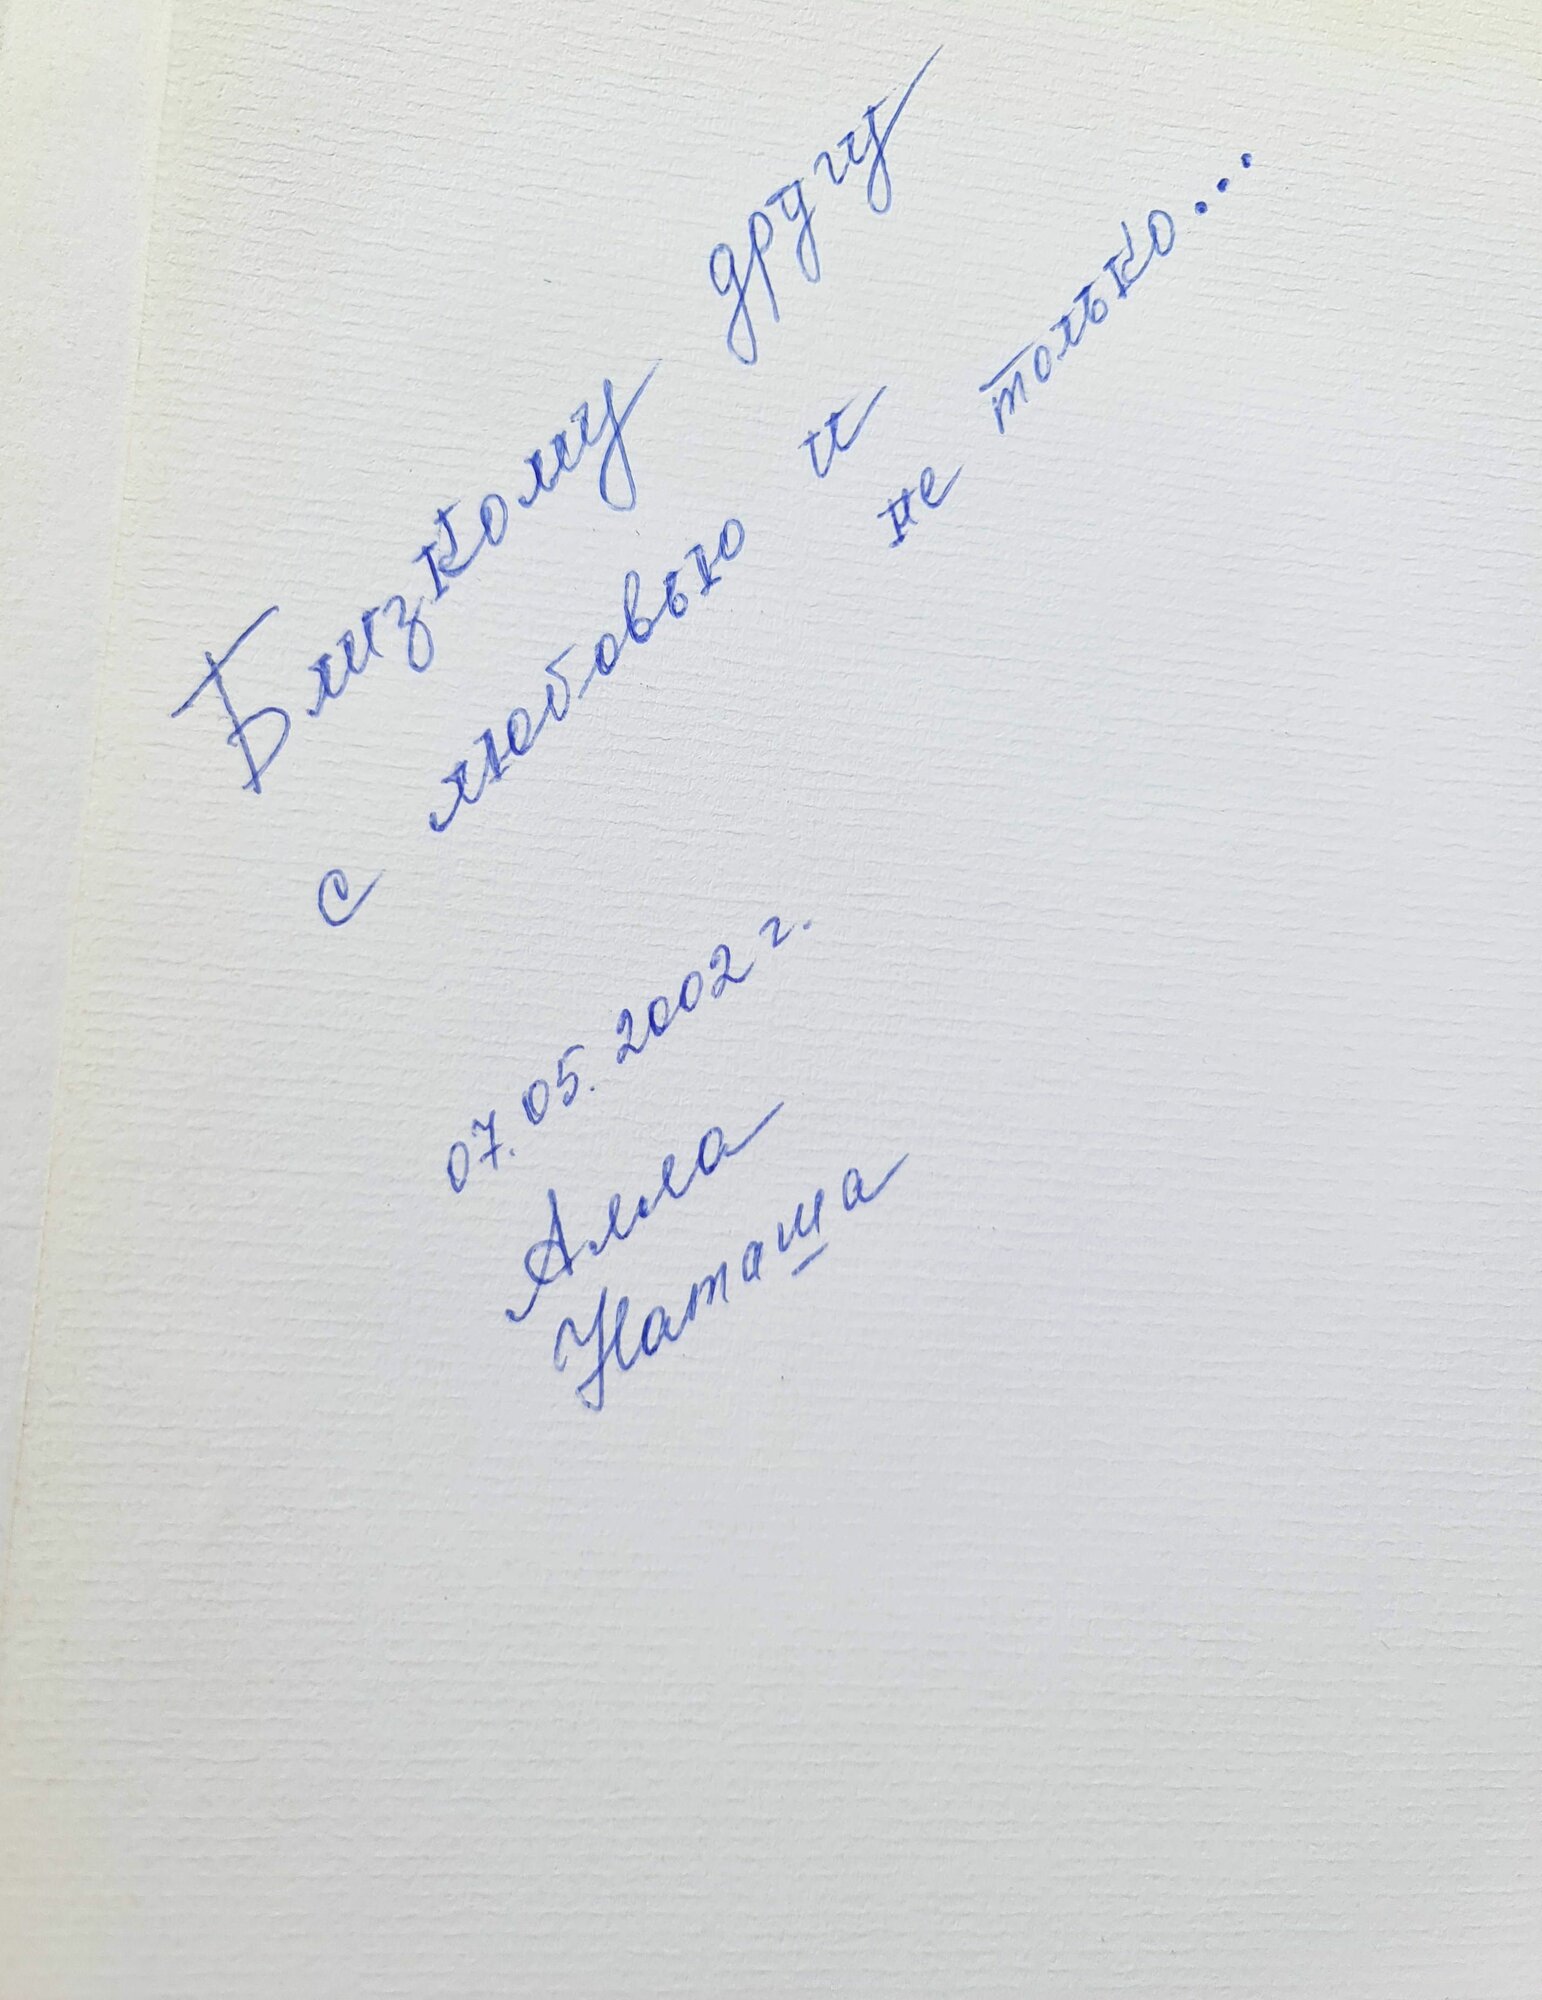 Близкому другу
с любовью и
не только...
07.05.2002 г.
Алла
Наташа